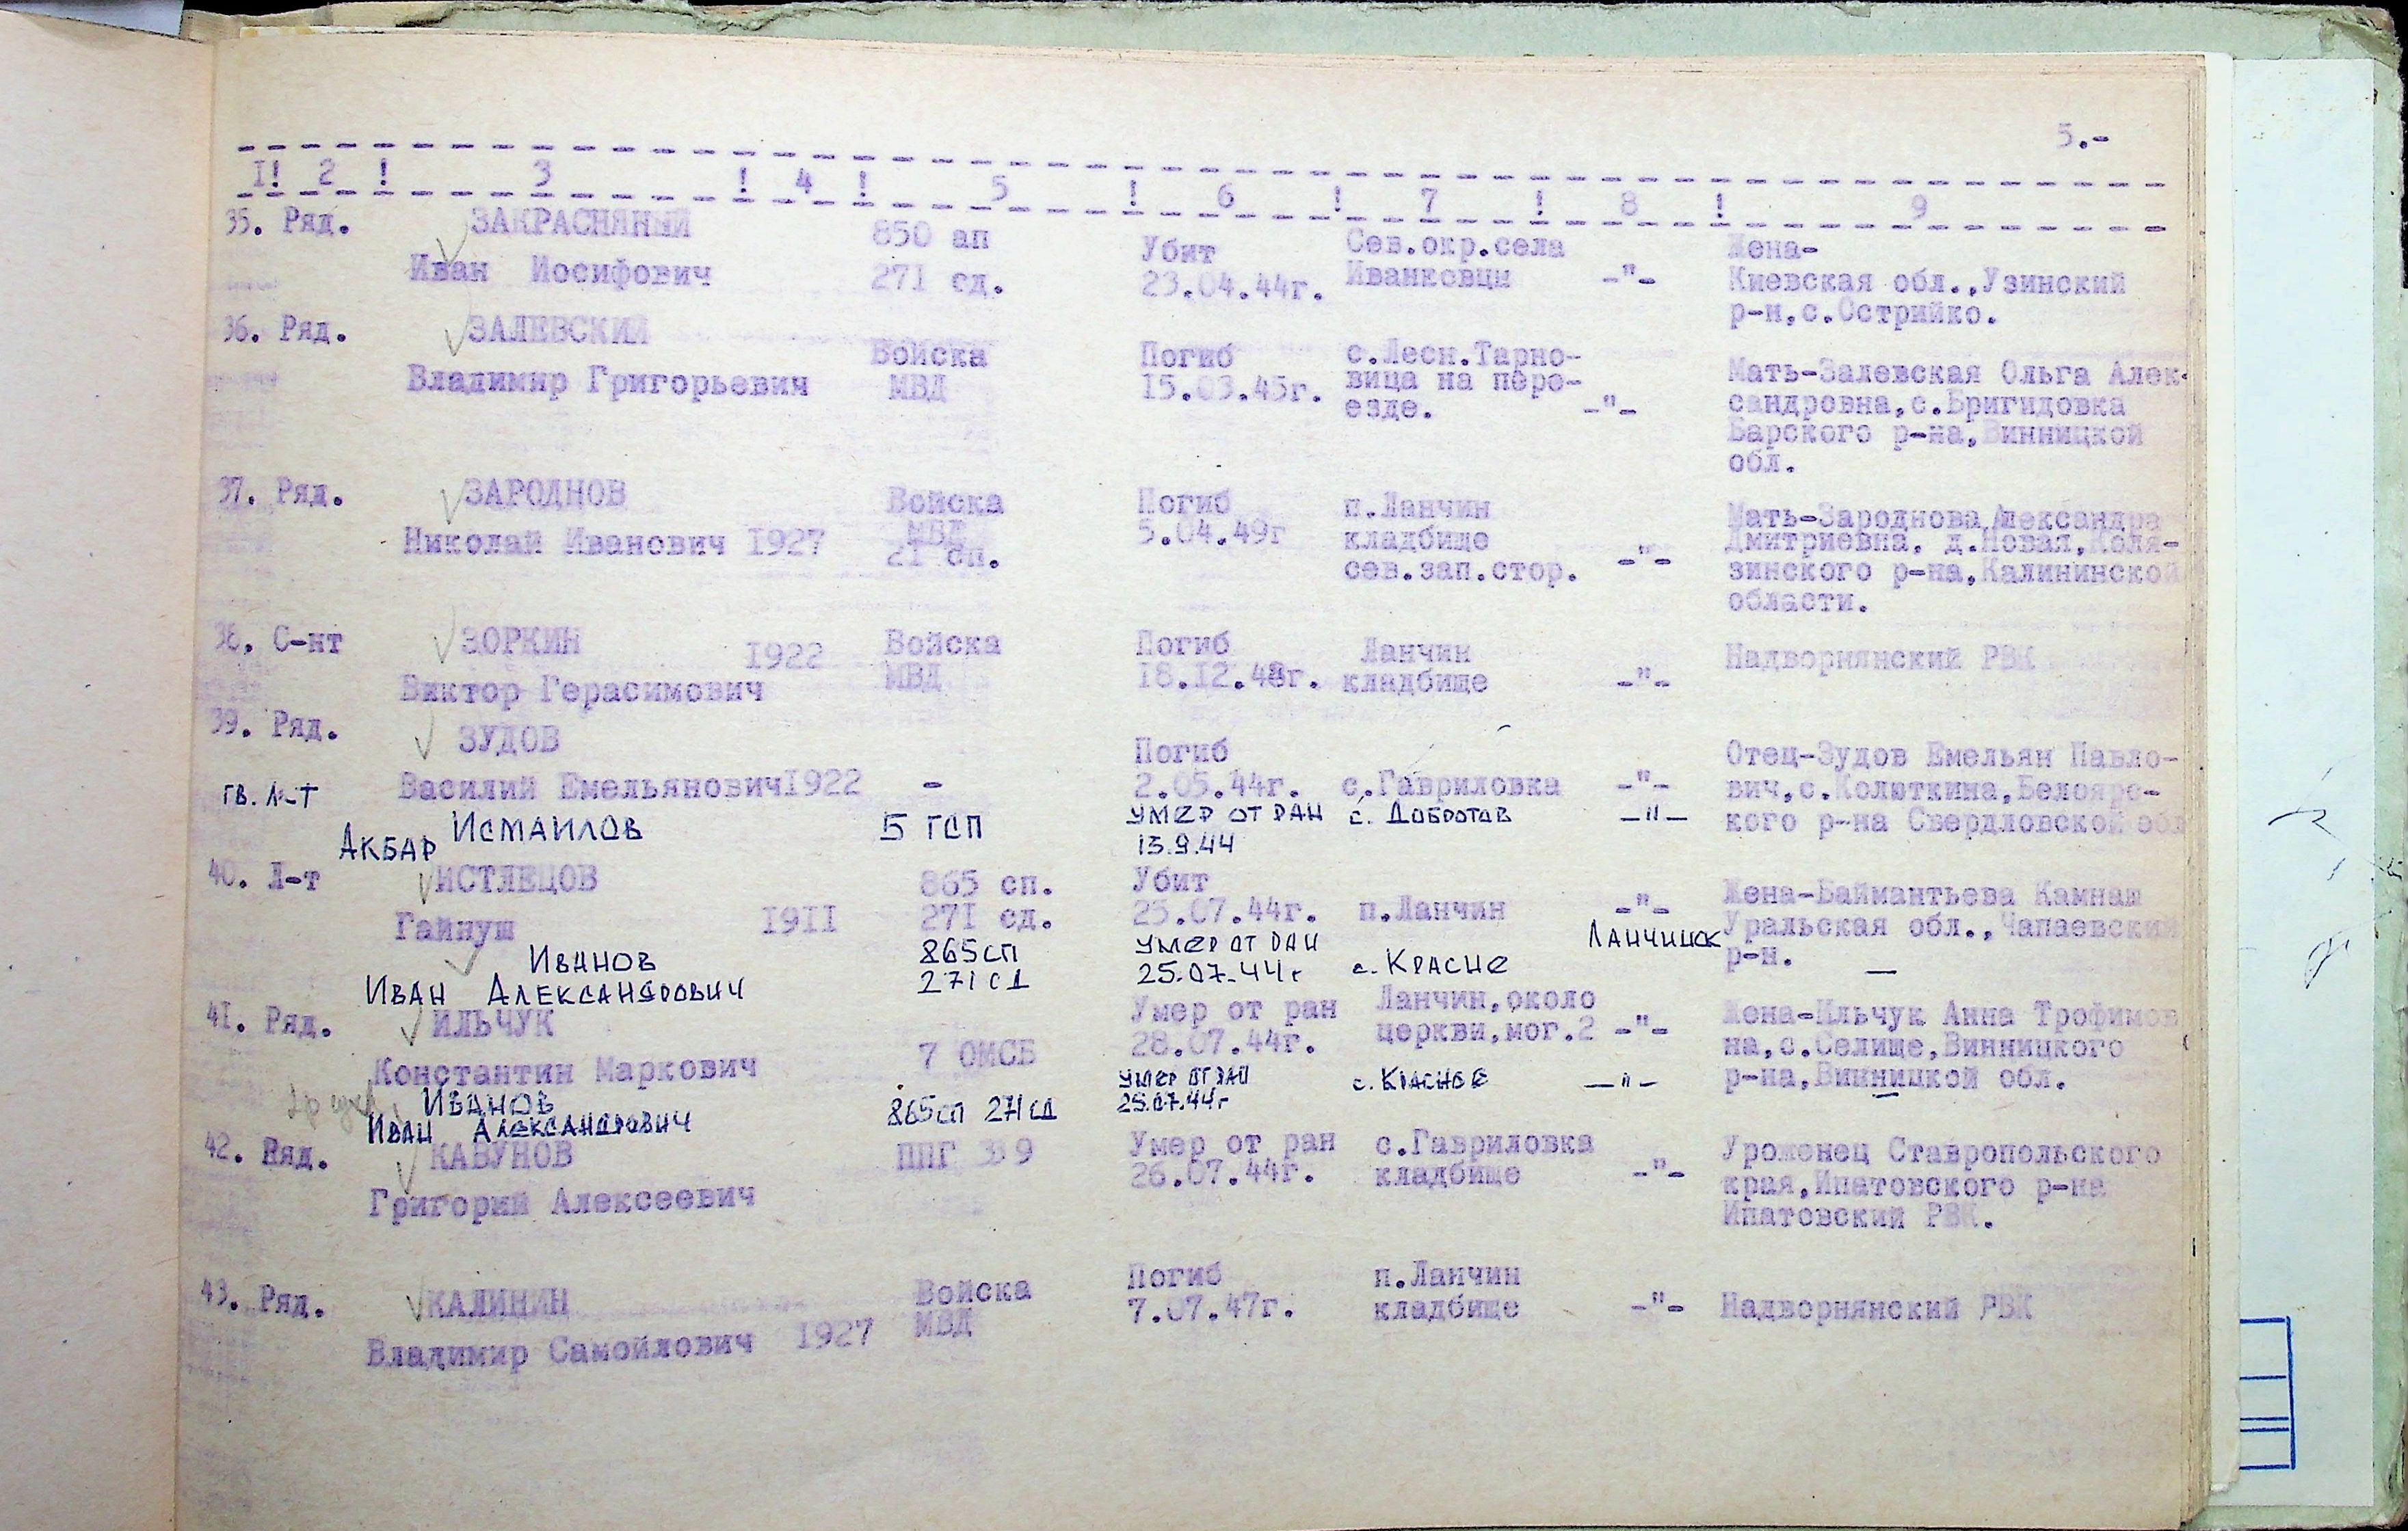 5.-
I! 2 ! 3 ! 4 ! 5 ! 6 ! 7 ! 8 ! 9
35. Ряд. ЗАКРАСНЯНЫЙ 850 ап Убит Сев.окр.села Жена-
Иван Иосифович 271 сд. 23.04.44г. Иванковцы -"- Киевская обл.,Узинский
р-н,с.Острийко.
36. Ряд. ЗАЛЕВСКИЙ Войска Погиб с.Лесн.Тарно-
Владимир Григорьевич МВД 15.03.45г. вица на пере- Мать-Залевская Ольга Алек-
езде. -"- сандровна,с.Бригидовка
Барского р-на,Винницкой
обл.
37. Ряд. ЗАРОДНОВ Войска Погиб п.Ланчин Мать-Зароднова Александра
Николай Иванович 1927 МВД 5.04.49г кладбище Дмитриевна. д.Новая,Коля-
21 сп. сев.зап.стор. -"- зинского р-на,Калининской
области.
38. С-нт ЗОРКИН 1922 Войска Погиб Ланчин Надворнянский РВК
Виктор Герасимович МВД 18.12.48г. кладбище -"-
39. Ряд. ЗУДОВ Погиб Отец-Зудов Емельян Павло-
Василий Емельянович1922 - 2.05.44г. с.Гавриловка -"- вич,с.Колюткина,Белоярс-
кого р-на Свердловской обл
гв. л-т ИСМАИЛОВ 5 ГСП УМЕР ОТ РАН с. ДОБРОТОВ -"-
АКБАР 13.9.44
40. Л-т ИСТЛЕЦОВ 865 сп. Убит Жена-Баймантьева Камнаш
Гайнуш 1911 271 сд. 25.07.44г. п.Ланчин -"- Уральская обл.,Чапаевский
р-н.
ИВАНОВ 865СП УМЕР ОТ РАН ЛАНЧИНСК
ИВАН АЛЕКСАНДРОВИЧ 271СД 25.07.44г с. КРАСНЕ —
41. Ряд. ИЛЬЧУК Умер от ран Ланчин,около Жена-Ильчук Анна Трофимов
Константин Маркович 7 ОМСБ 28.07.44г. церкви,мог.2 -"- на,с.Селище,Винницкого
р-на,Винницкой обл.
ИВАНОВ 865СП 271СД УМЕР ОТ РАН с. КРАСНОЕ -"- —
ИВАН АЛЕКСАНДРОВИЧ 25.07.44г
42. Ряд. КАВУНОВ ППГ Умер от ран с.Гавриловка Уроженец Ставропольского
Григорий Алексеевич 26.07.44г. кладбище -"- края,Ипатовского р-на
Ипатовский РВК.
43. Ряд. КАЛИНИН Войска Погиб п.Ланчин
Владимир Самойлович 1927 МВД 7.07.47г. кладбище -"- Надворнянский РВК